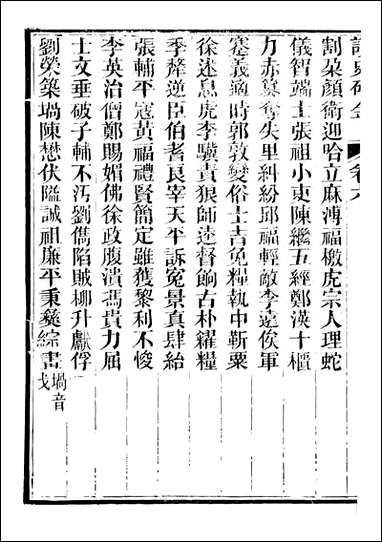 割朶顏衛迎哈立麻溥福檄虎宗人理蛇
儀智端士張祖小吏陳繼五經鄭渶十櫃
力赤篡奪失里糾紛邱福輕敵李遠俟軍
蹇義適時郭敦變俗士吉免糧執中靳粟
徐述息虎李驥責狼師逵督餉古朴糴糧
季犛逆臣伯耆良宰天平訴冤景真肆紿
張輔平寇黃福禮賢簡定雖獲黎利不悛
李英治僧鄭賜媚佛徐政腹潰馮貴力屈
士文垂破子輔不汚劉儁陷賊柳升獻俘
劉榮築堝陳懋伏隘誠祖廉平秉彝綜畫堝音戈